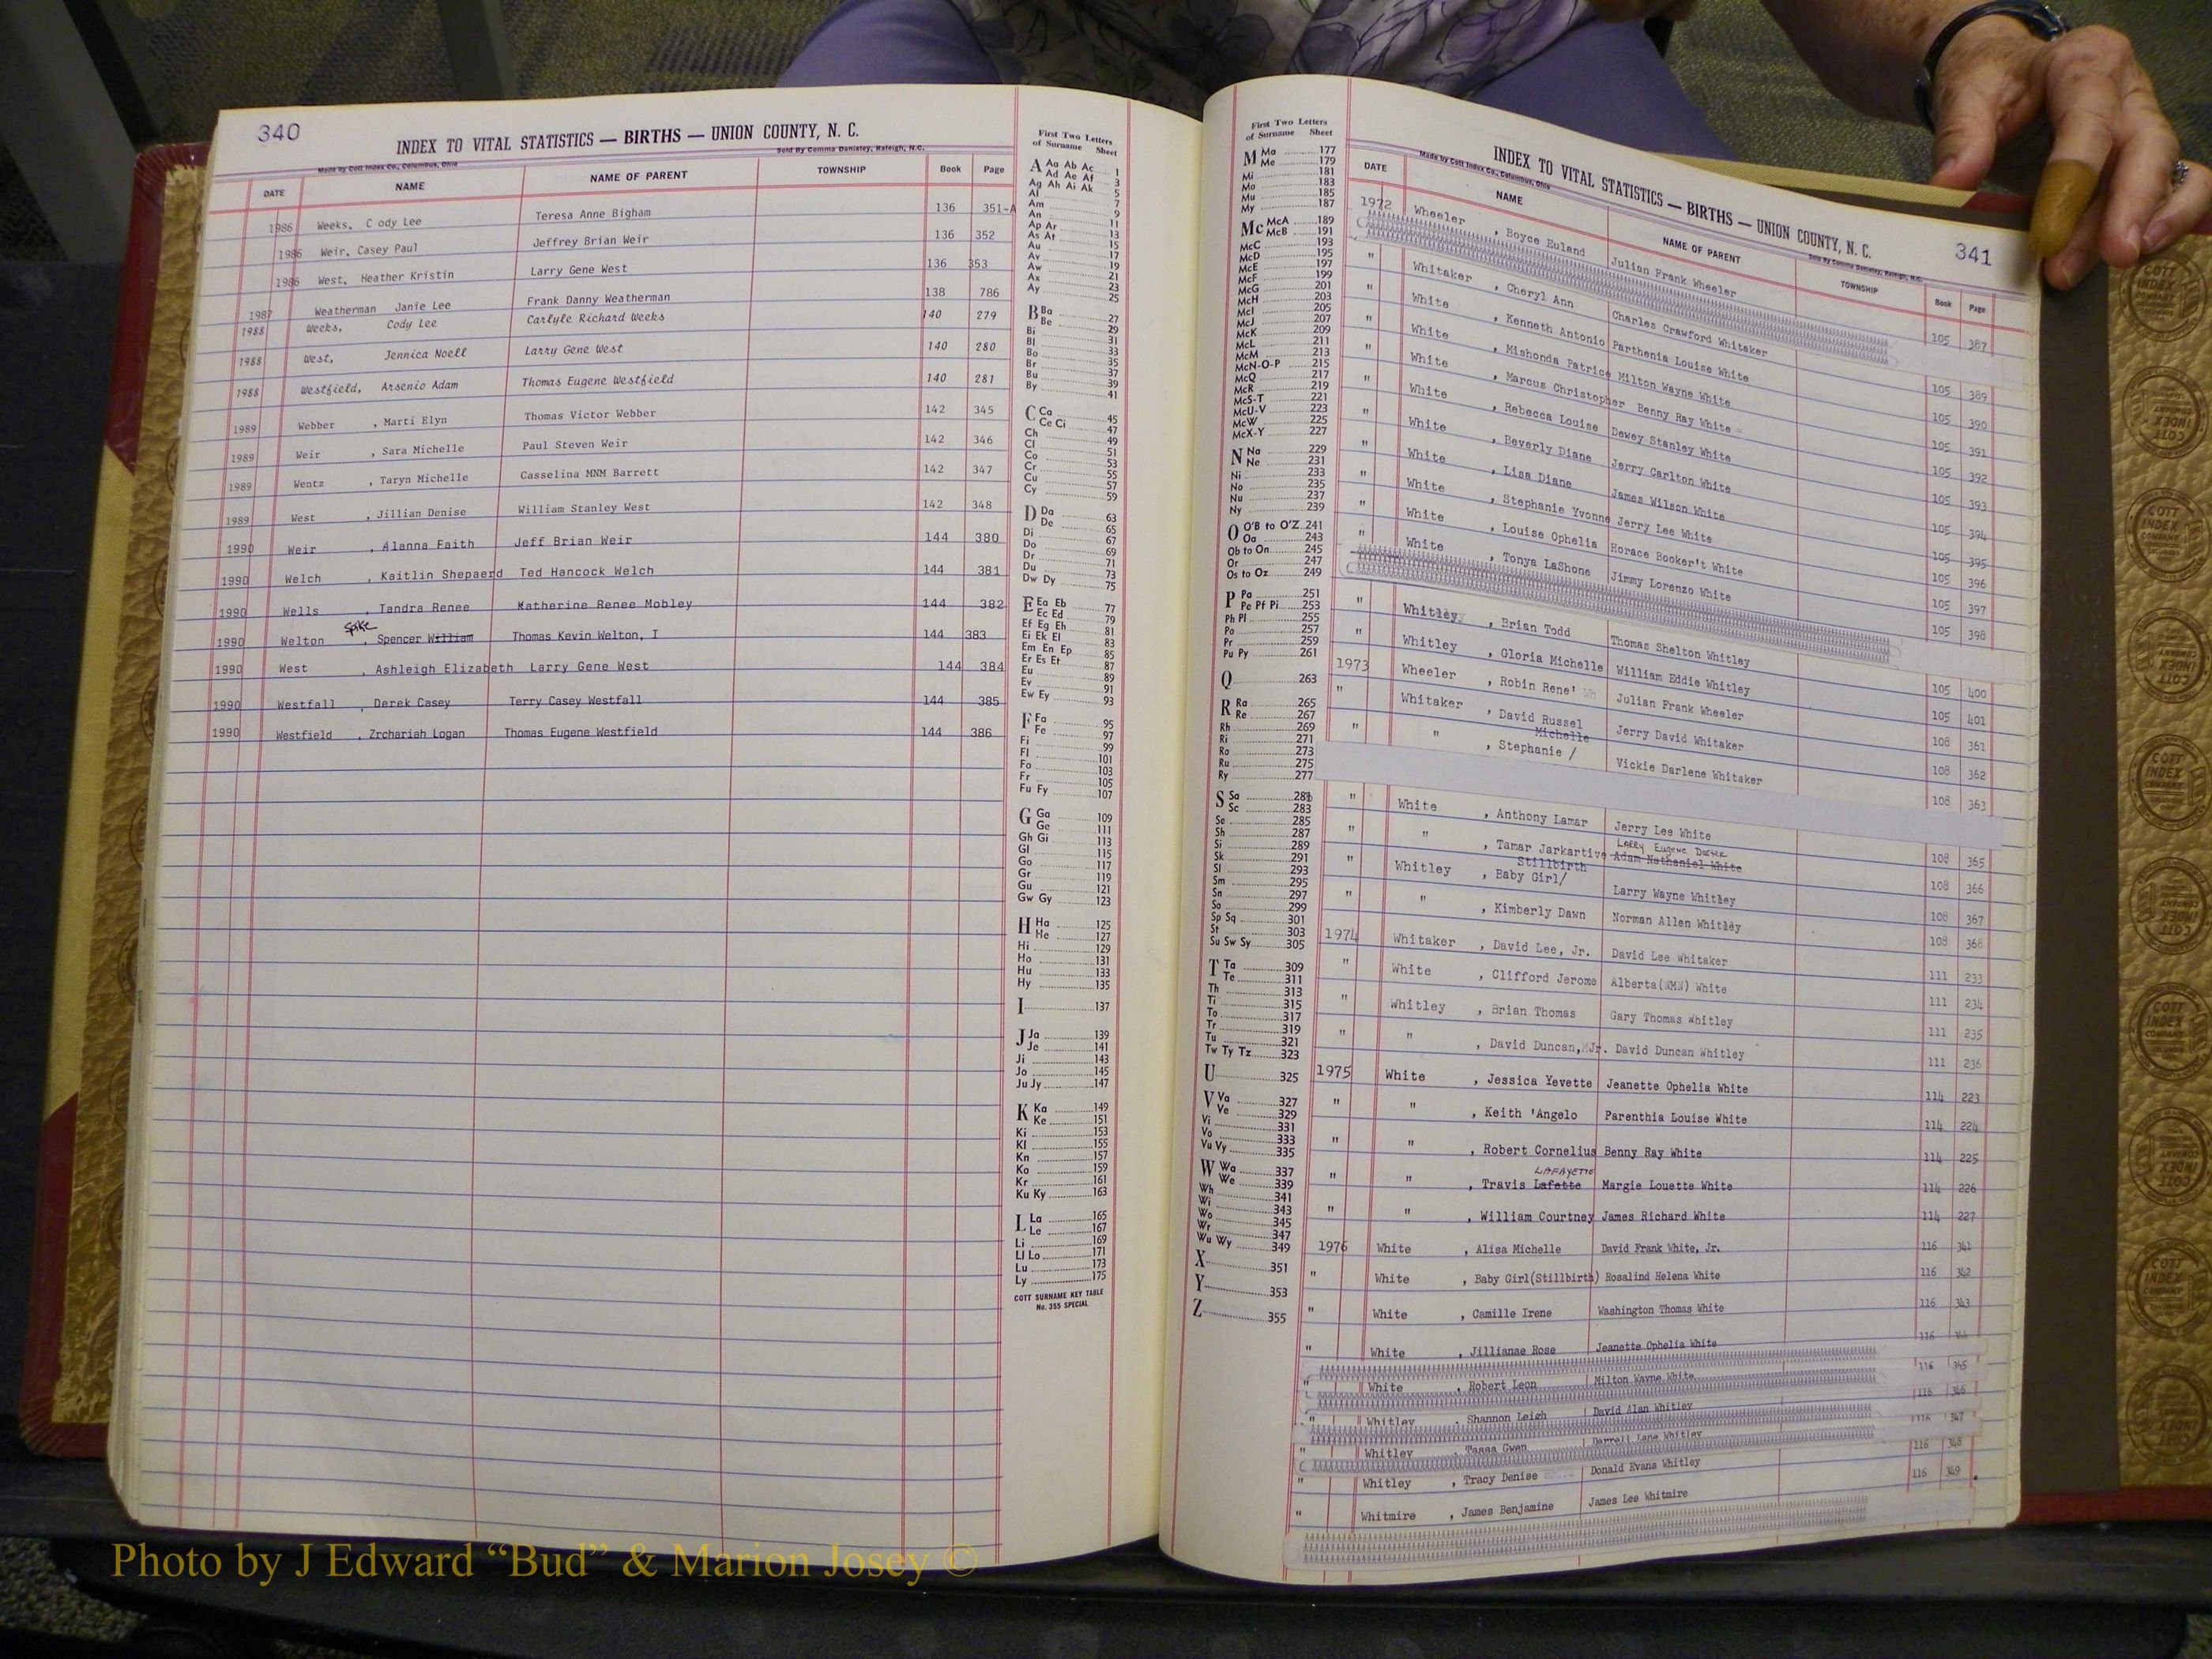 340
INDEX TO VITAL STATISTICS — BIRTHS — UNION COUNTY, N. C.
Made by Cott Index Co., Columbus, Ohio Sold By Comma Danieley, Raleigh, N.C.
DATE NAME NAME OF PARENT TOWNSHIP Book Page
1986 Weeks, C ody Lee Teresa Anne Bigham 136 351-A
1986 Weir, Casey Paul Jeffrey Brian Weir 136 352
1986 West, Heather Kristin Larry Gene West 136 353
1987 Weatherman Janie Lee Frank Danny Weatherman 138 786
1988 Weeks, Cody Lee Carlyle Richard Weeks 140 279
1988 West, Jennica Noell Larry Gene West 140 280
1988 Westfield, Arsenio Adam Thomas Eugene Westfield 140 281
1989 Webber , Marti Elyn Thomas Victor Webber 142 345
1989 Weir , Sara Michelle Paul Steven Weir 142 346
1989 Wentz , Taryn Michelle Casselina MNM Barrett 142 347
1989 West , Jillian Denise William Stanley West 142 348
1990 Weir , Alanna Faith Jeff Brian Weir 144 380
1990 Welch , Kaitlin Shepaerd Ted Hancock Welch 144 381
1990 Wells , Tandra Renee Katherine Renee Mobley 144 382
Spike
1990 Welton , Spencer William Thomas Kevin Welton, I 144 383
1990 West , Ashleigh Elizabeth Larry Gene West 144 384
1990 Westfall , Derek Casey Terry Casey Westfall 144 385
1990 Westfield , Zrchariah Logan Thomas Eugene Westfield 144 386
First Two Letters
of Surname Sheet
A Aa Ab Ac 1
Ad Ae Af 3
Ag Ah Ai Ak 5
Al 7
Am 9
An 11
Ap Ar 13
As At 15
Au 17
Av 19
Aw 21
Ax 23
Ay 25
B Ba 27
Be 29
Bi 31
Bl 33
Bo 35
Br 37
Bu 39
By 41
C Ca 45
Ce Ci 47
Ch 49
Cl 51
Co 53
Cr 55
Cu 57
Cy 59
D Da 63
De 65
Di 67
Do 69
Dr 71
Du 73
Dw Dy 75
E Ea Eb 77
Ec Ed 79
Ef Eg Eh 81
Ei Ek El 83
Em En Ep 85
Er Es Et 87
Eu 89
Ev 91
Ew Ey 93
F Fa 95
Fe 97
Fi 99
Fl 101
Fo 103
Fr 105
Fu Fy 107
G Ga 109
Ge 111
Gh Gi 113
Gl 115
Go 117
Gr 119
Gu 121
Gw Gy 123
H Ha 125
He 127
Hi 129
Ho 131
Hu 133
Hy 135
I 137
J Ja 139
Je 141
Ji 143
Jo 145
Ju Jy 147
K Ka 149
Ke 151
Ki 153
Kl 155
Kn 157
Ko 159
Kr 161
Ku Ky 163
L La 165
Le 167
Li 169
Ll Lo 171
Lu 173
Ly 175
COTT SURNAME KEY TABLE
No. 355 SPECIAL
First Two Letters
of Surname Sheet
M Ma 177
Me 179
Mi 181
Mo 183
Mu 185
My 187
Mc McA 189
McB 191
McC 193
McD 195
McE 197
McF 199
McG 201
McH 203
McI 205
McJ 207
McK 209
McL 211
McM 213
McN-O-P 215
McQ 217
McR 219
McS-T 221
McU-V 223
McW 225
McX-Y 227
N Na 229
Ne 231
Ni 233
No 235
Nu 237
Ny 239
O O'B to O'Z 241
Oa 243
Ob to On 245
Or 247
Os to Oz 249
P Pa 251
Pe Pf Pi 253
Ph Pl 255
Po 257
Pr 259
Pu Py 261
Q 263
R Ra 265
Re 267
Rh 269
Ri 271
Ro 273
Ru 275
Ry 277
S Sa
Sc 283
Se 285
Sh 287
Si 289
Sk 291
Sl 293
Sm 295
Sn 297
So 299
Sp Sq 301
St 303
Su Sw Sy 305
T Ta 309
Te 311
Th 313
Ti 315
To 317
Tr 319
Tu 321
Tw Ty Tz 323
U 325
V Va 327
Ve 329
Vi 331
Vo 333
Vu Vy 335
W Wa 337
We 339
Wh 341
Wi 343
Wo 345
Wr 347
Wu Wy 349
X 351
Y 353
Z 355
341
INDEX TO VITAL STATISTICS — BIRTHS — UNION COUNTY, N. C.
Made by Cott Index Co., Columbus, Ohio Sold By Comma Danieley, Raleigh, N.C.
DATE NAME NAME OF PARENT TOWNSHIP Book Page
1972 Wheeler , Boyce Euland Julian Frank Wheeler 105 387
" Whitaker , Cheryl Ann Charles Crawford Whitaker 105 389
" White , Kenneth Antonio Parthenia Louise White 105 390
" White , Mishonda Patrice Milton Wayne White 105 391
" White , Marcus Christopher Benny Ray White 105 392
" White , Rebecca Louise Dewey Stanley White 105 393
" White , Beverly Diane Jerry Carlton White 105 394
" White , Lisa Diane James Wilson White 105 395
" White , Stephanie Yvonne Jerry Lee White 105 396
" White , Louise Ophelia Horace Booker't White 105 397
" White , Tonya LaShone Jimmy Lorenzo White 105 398
" Whitley , Brian Todd Thomas Shelton Whitley 105 400
" Whitley , Gloria Michelle William Eddie Whitley 105 401
1973 Wheeler , Robin Rene' Julian Frank Wheeler 108 361
" Whitaker , David Russel Jerry David Whitaker 108 362
Michelle
" " , Stephanie / Vickie Darlene Whitaker 108 363
" White , Anthony Lamar Jerry Lee White 108 365
Larry Eugene Doster
" " , Tamar Jarkartive Adam Nathaniel White 108 366
Stillbirth
" Whitley , Baby Girl/ Larry Wayne Whitley 108 367
" " , Kimberly Dawn Norman Allen Whitley 108 368
1974 Whitaker , David Lee, Jr. David Lee Whitaker 111 233
" White , Clifford Jerome Alberta(NMN) White 111 234
" Whitley , Brian Thomas Gary Thomas Whitley 111 235
" " , David Duncan, Jr. David Duncan Whitley 111 236
1975 White , Jessica Yevette Jeanette Ophelia White 114 223
" " , Keith 'Angelo Parenthia Louise White 114 224
" " , Robert Cornelius Benny Ray White 114 225
LAFAYETTE
" " , Travis Lafette Margie Louette White 114 226
" " , William Courtney James Richard White 114 227
1976 White , Alisa Michelle David Frank White, Jr. 116 341
" White , Baby Girl(Stillbirth) Rosalind Helena White 116 342
" White , Camille Irene Washington Thomas White 116 343
" White , Jillianae Rose Jeanette Ophelia White 116 344
" White , Robert Leon Milton Wayne White 116 345
" Whitley , Shannon Leigh David Alan Whitley 116 346
" Whitley , Gwen Darrell Lane Whitley 116 347
" Whitley , Tracy Denise Donald Evans Whitley 116 348
" Whitmire , James Benjamine James Lee Whitmire 116 349
COTT
INDEX
COMPANY
Photo by J Edward “Bud” & Marion Josey ©